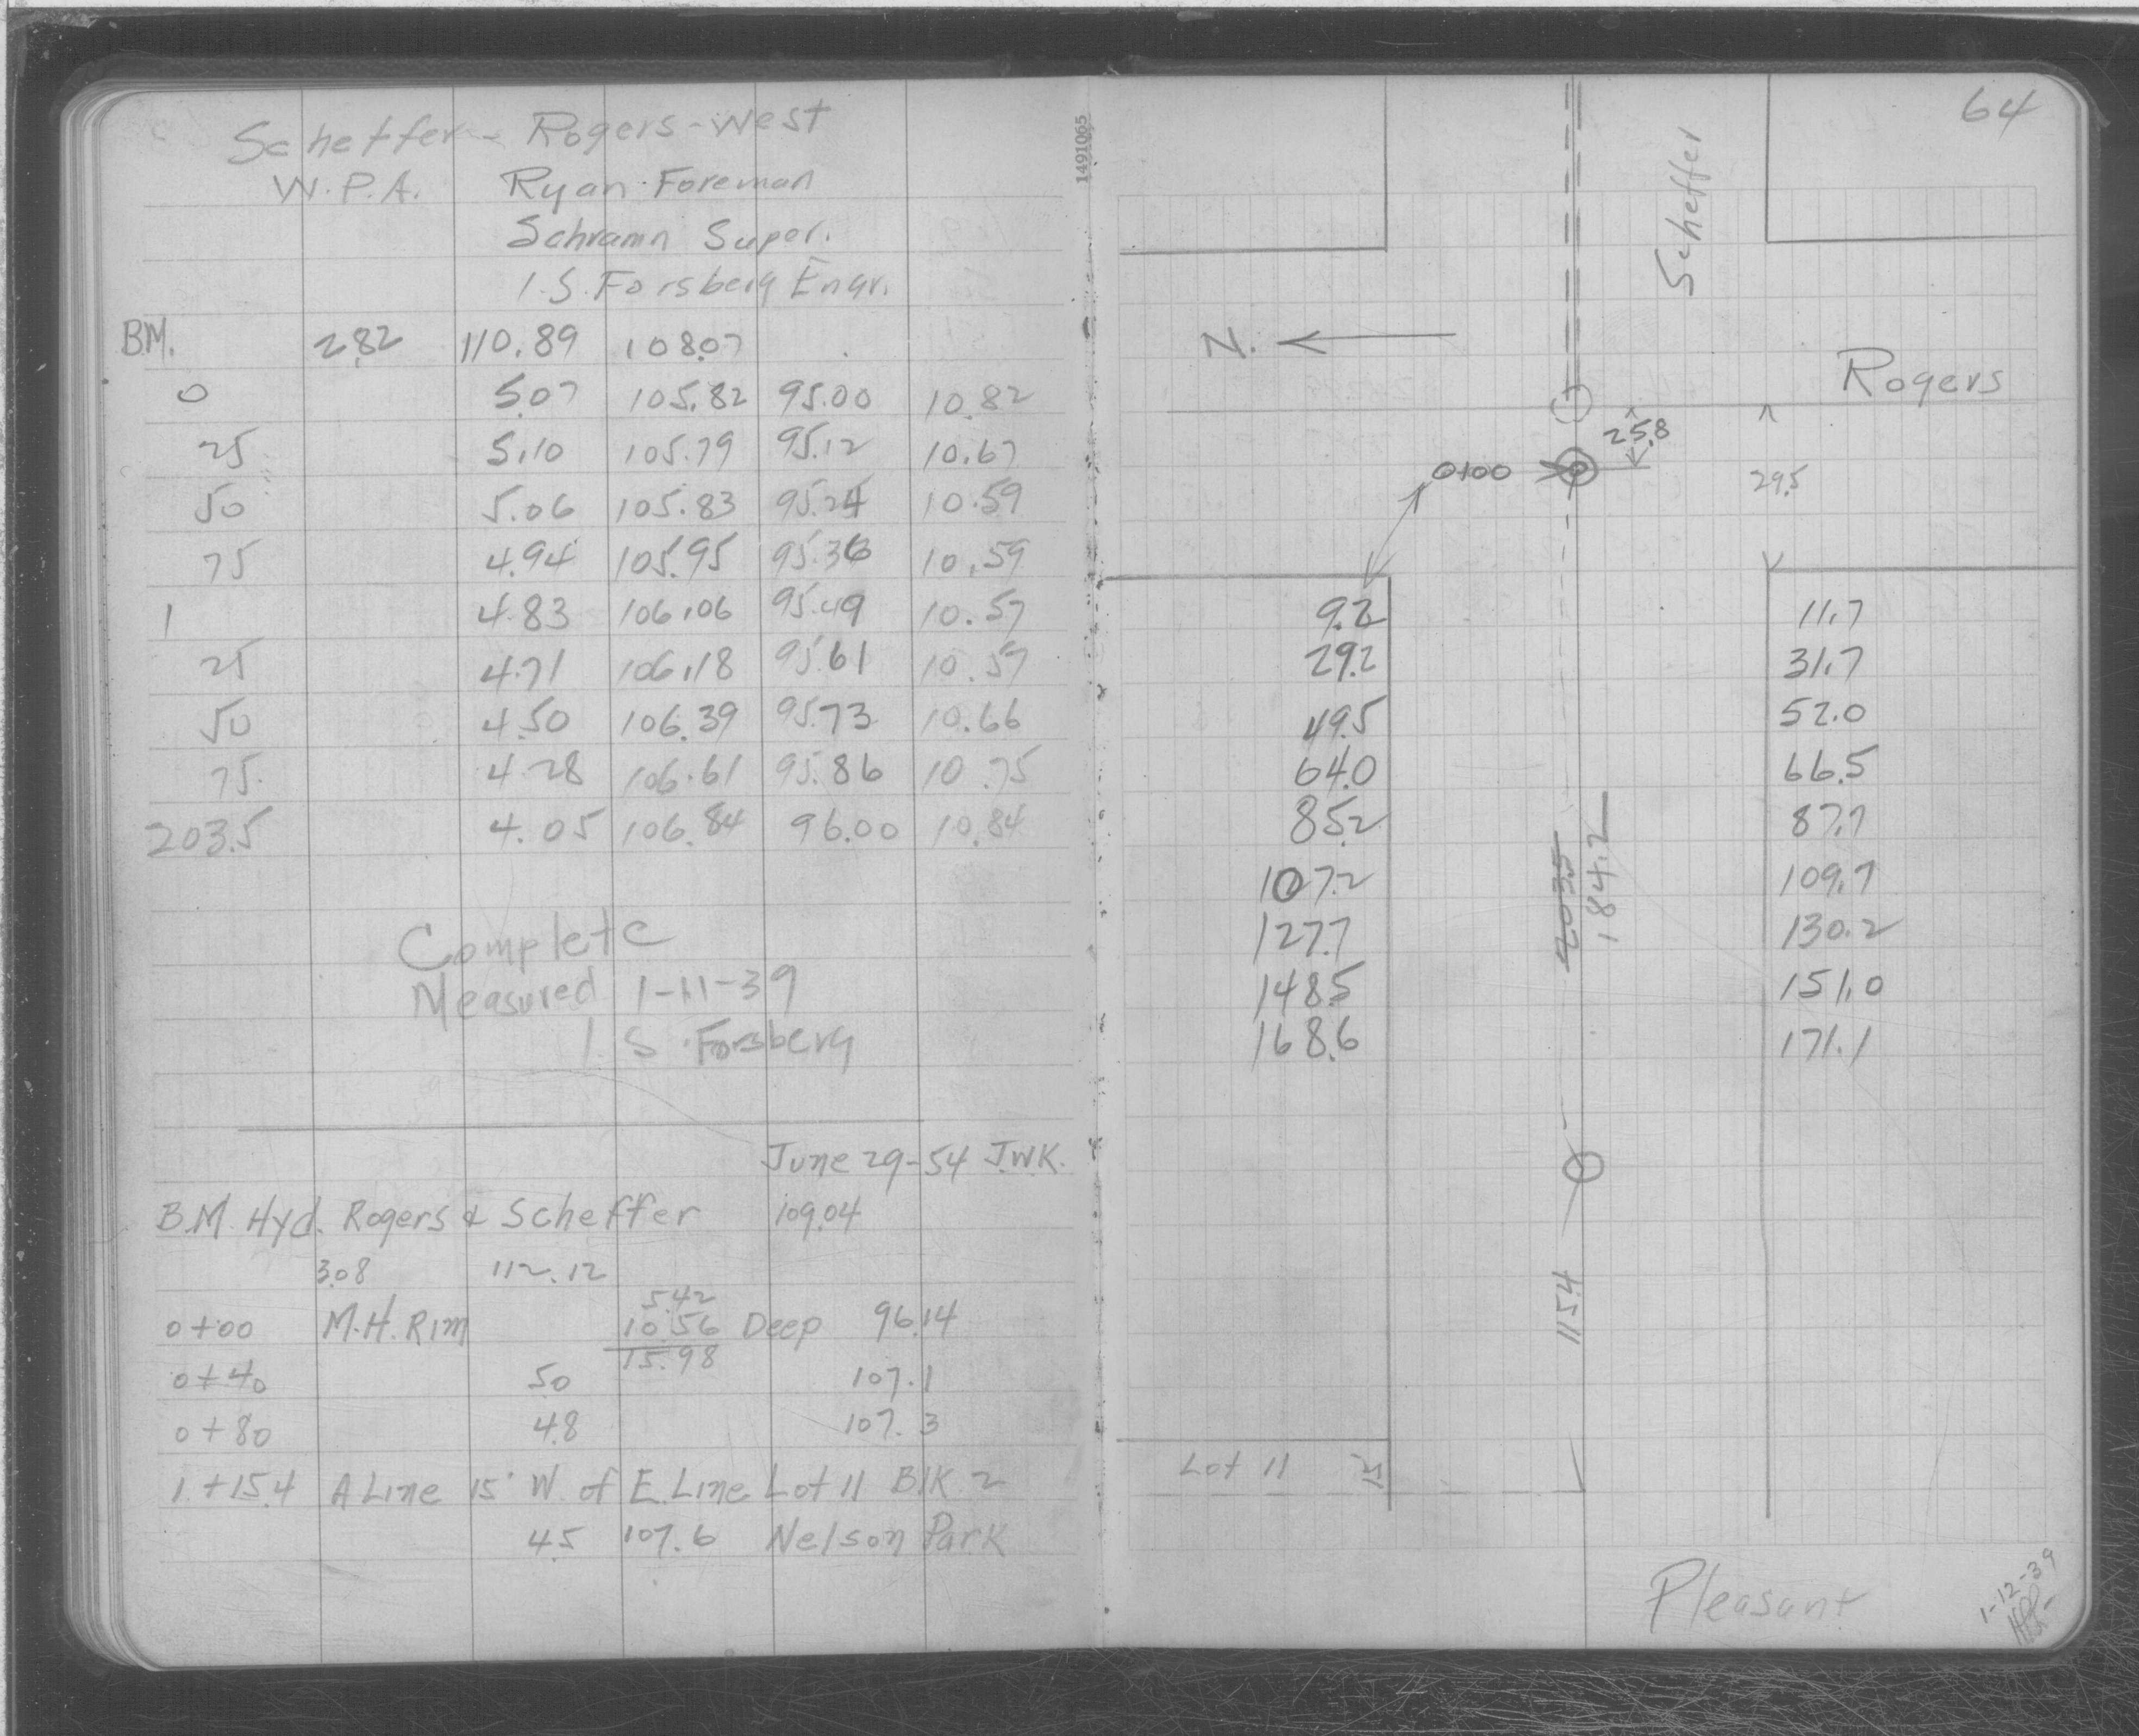 Scheffer - Rogers - West
W.P.A. Ryan - Foreman
Schramn Super.
I.S. Forsberg Engr.
B.M. 2.82 110.89 108.07
0 5.07 105.82 95.00 10.82
25 5.10 105.79 95.12 10.67
50 5.06 105.83 95.24 10.59
75 4.94 105.95 95.36 10.59
1 4.83 106.06 95.49 10.57
25 4.71 106.18 95.61 10.57
50 4.50 106.39 95.73 10.66
75 4.28 106.61 95.86 10.75
203.5 4.05 106.84 96.00 10.84
Complete
Measured 1-11-39
I. S. Forsberg
June 29-54 J.W.K.
B.M. Hyd. Rogers & Scheffer 109.04
3.08 112.12
5.42
0+00 M.H. Rim 10.56 Deep 96.14
15.98
0+40 50 107.1
0+80 4.8 107.3
1+15.4 A Line 15' W. of E. Line Lot 11 Blk 2
4.5 107.6 Nelson Park
1491065
64
Scheffer
N.
Rogers
25.8
0+00
29.5
9.2 11.7
29.2 31.7
49.5 52.0
64.0 66.5
85.2 87.7
107.2 109.7
127.7 130.2
148.5 151.0
168.6 171.1
203.5
184.2
115.4
Lot 11 15
Pleasant
1-12-39